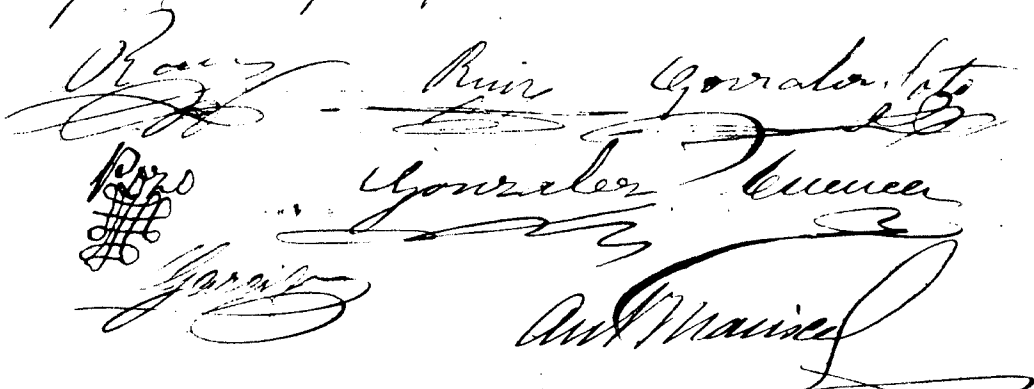 Ruiz Gonzalez Soto
Pozo Gonzalez Cuenca
Garcia
Ant Mariscal